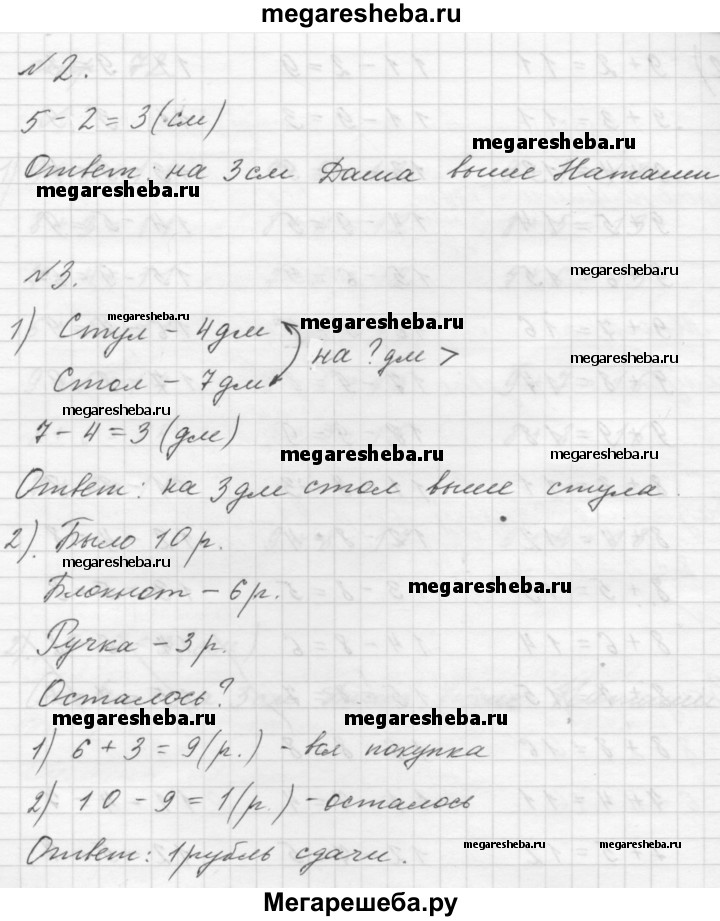 megaresheba.ru
№2.
5 - 2 = 3 (см)
megaresheba.ru
Ответ: на 3 см Даша выше Наташи
megaresheba.ru
№3.
megaresheba.ru
megaresheba.ru
1) Стул - 4 дм
megaresheba.ru
на ? дм >
megaresheba.ru
Стол - 7 дм
megaresheba.ru
7 - 4 = 3 (дм)
megaresheba.ru
megaresheba.ru
Ответ: на 3 дм стол выше стула.
2). Было 10 р.
megaresheba.ru
Блокнот - 6 р.
megaresheba.ru
Ручка - 3 р.
Осталось?
megaresheba.ru
megaresheba.ru
1) 6 + 3 = 9 (р.) - вся покупка
2) 10 - 9 = 1 (р.) - осталось
Ответ: 1 рубль сдачи.
megaresheba.ru
megaresheba.ru
Мегарешеба.ру